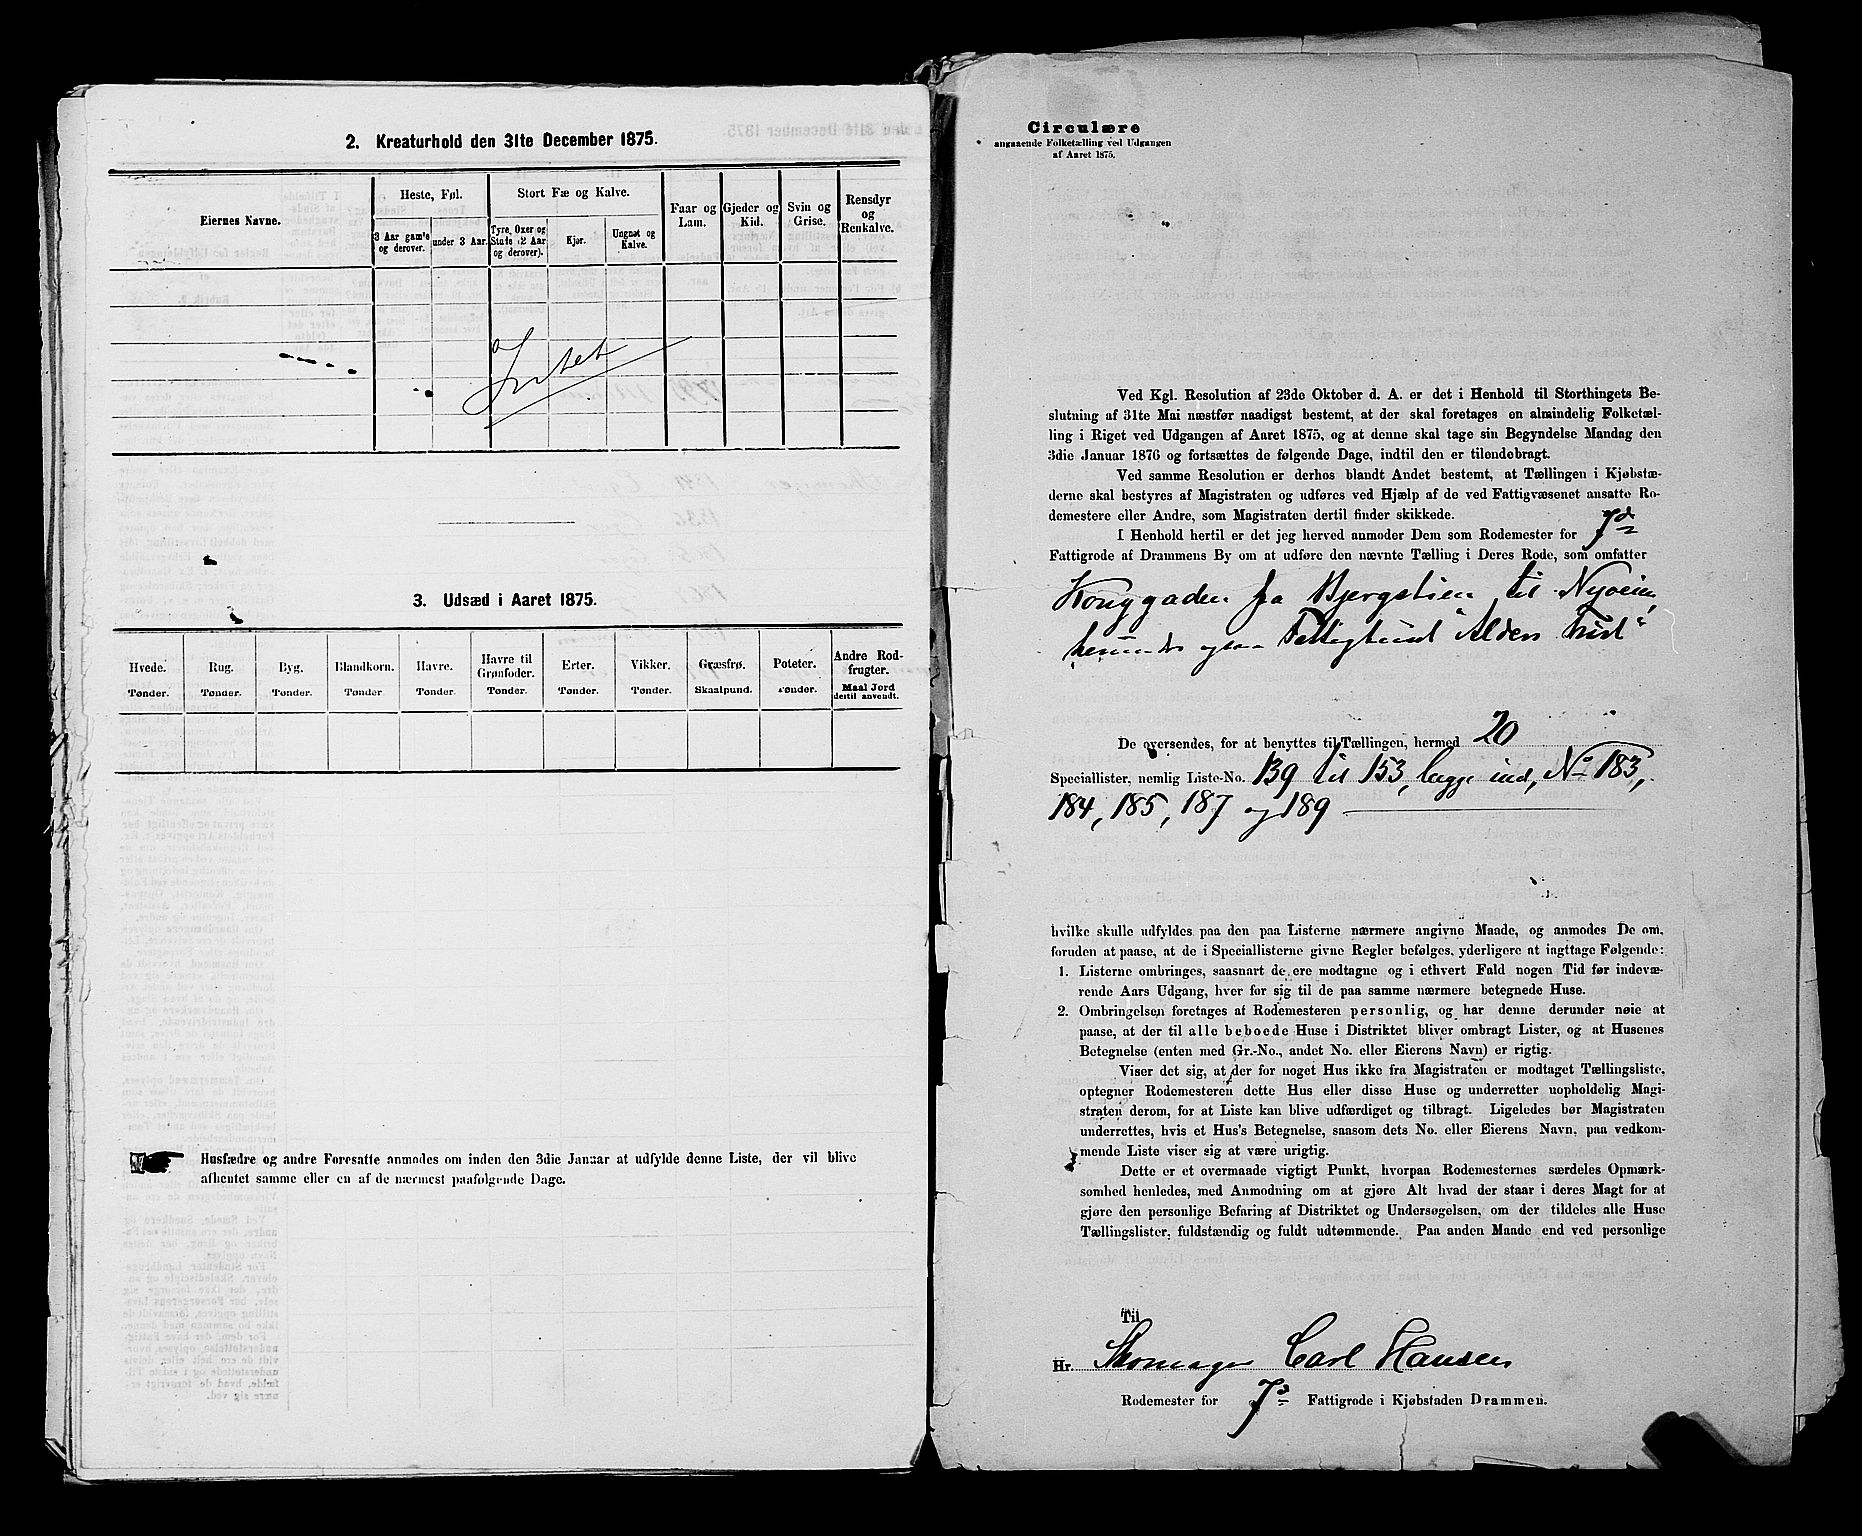 2. Kreaturhold den 31te December 1875.
Eiernes Navne.
Heste, Føl.
3 Aar gamle og derover.
under 3 Aar.
Stort Fæ og Kalve.
Tyre, Oxer og Stude (2 Aar og derover).
Kjør.
Ungnøt og Kalve.
Faar og Lam.
Gjeder og Kid.
Svin og Grise.
Rensdyr og Renkalve.
Intet
3. Udsæd i Aaret 1875.
Hvede. Tønder.
Rug. Tønder.
Byg. Tønder.
Blandkorn. Tønder.
Havre. Tønder.
Havre til Grønfoder. Tønder.
Erter. Tønder.
Vikker. Tønder.
Græsfrø. Skaalpund.
Poteter. Tønder.
Andre Rodfrugter. Maal Jord dertil anvendt.
Husfædre og andre Foresatte anmodes om inden den 3die Januar at udfylde denne Liste, der vil blive
afhentet samme eller en af de nærmest paafølgende Dage.
Circulære
angaaende Folketælling ved Udgangen
af Aaret 1875.
Ved Kgl. Resolution af 23de Oktober d. A. er det i Henhold til Storthingets Be-
slutning af 31te Mai næstfør naadigst bestemt, at der skal foretages en almindelig Folketæl-
ling i Riget ved Udgangen af Aaret 1875, og at denne skal tage sin Begyndelse Mandag den
3die Januar 1876 og fortsættes de følgende Dage, indtil den er tilendebragt.
Ved samme Resolution er derhos blandt Andet bestemt, at Tællingen i Kjøbstæ-
derne skal bestyres af Magistraten og udføres ved Hjælp af de ved Fattigvæsenet ansatte Ro-
demestere eller Andre, som Magistraten dertil finder skikkede.
I Henhold hertil er det jeg herved anmoder Dem som Rodemester for 7de
Fattigrode af Drammens By om at udføre den nævnte Tælling i Deres Rode, som omfatter
Konggaden fra Bjergstien til Nyveien,
herunder ogsaa
De oversendes, for at benyttes til Tællingen, hermed 20
Speciallister, nemlig Liste-No. 139 til 153, begge incl, No 183,
184, 185, 187 og 189
hvilke skulle udfyldes paa den paa Listerne nærmere angivne Maade, og anmodes De om,
foruden at paase, at de i Speciallisterne givne Regler befølges, yderligere at iagttage Følgende:
1. Listerne ombringes, saasnart de ere modtagne og i ethvert Fald nogen Tid før indevæ-
rende Aars Udgang, hver for sig til de paa samme nærmere betegnede Huse.
2. Ombringelsen foretages af Rodemesteren personlig, og har denne derunder nøie at
paase, at der til alle beboede Huse i Distriktet bliver ombragt Lister, og at Husenes
Betegnelse (enten med Gr.-No., andet No. eller Eierens Navn) er rigtig.
Viser det sig, at der for noget Hus ikke fra Magistraten er modtaget Tællingsliste,
optegner Rodemesteren dette Hus eller disse Huse og underretter uopholdelig Magi-
straten derom, for at Liste kan blive udfærdiget og tilbragt. Ligeledes bør Magistraten
underrettes, hvis et Hus's Betegnelse, saasom dets No. eller Eierens Navn, paa vedkom-
mende Liste viser sig at være urigtig.
Dette er et overmaade vigtigt Punkt, hvorpaa Rodemesternes særdeles Opmærk-
somhed henledes, med Anmodning om at gjøre Alt hvad der staar i deres Magt for at
gjøre den personlige Befaring af Distriktet og Undersøgelsen, om der tildeles alle Huse
Tællingslister, fuldstændig og fuldt udtømmende. Paa anden Maade end ved personlige
Til
Hr. Skomager Carl Hansen
Rodemester for 7de Fattigrode i Kjøbstaden Drammen.